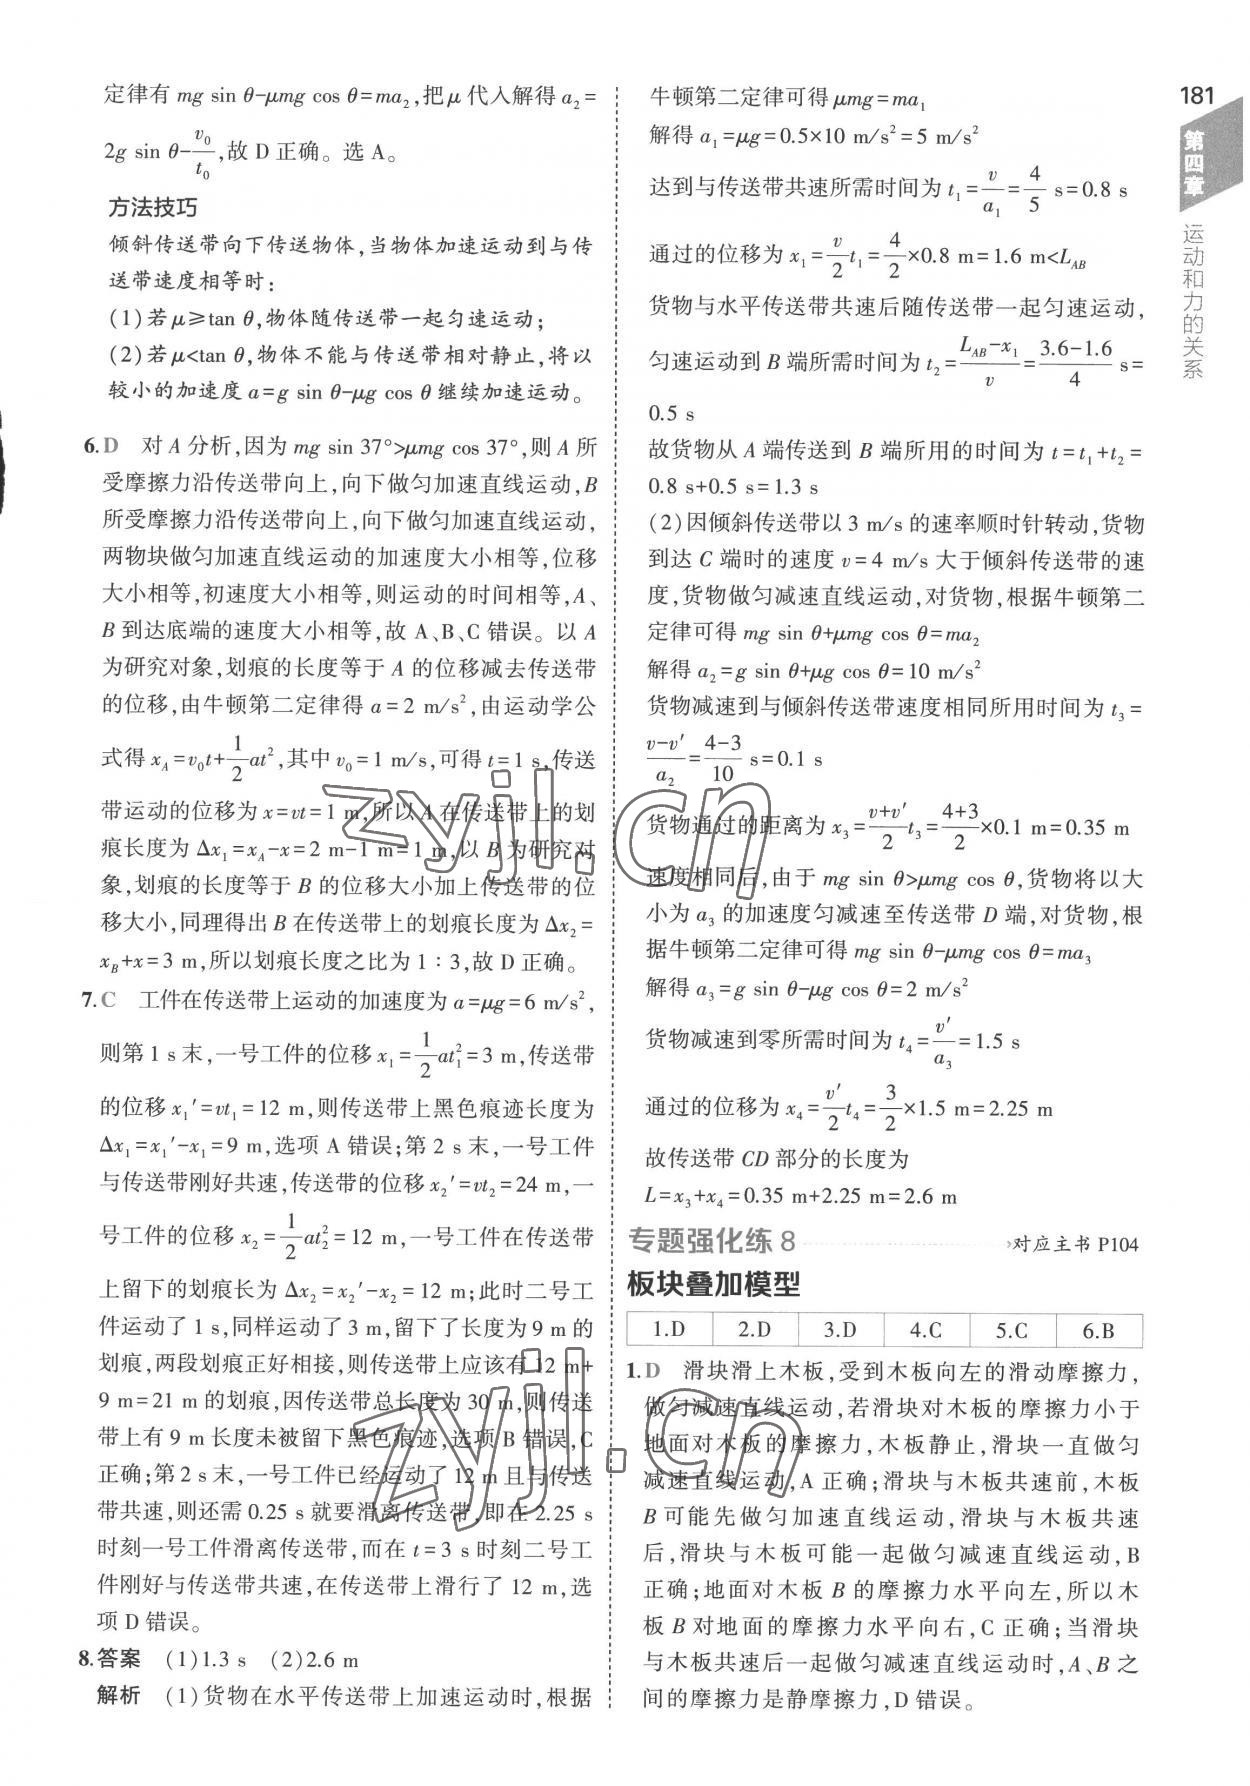 定律有 mg sin θ-μmg cos θ=ma₂,把 μ 代入解得 a₂=
2g sin θ-v₀/t₀,故 D 正确。选 A。
方法技巧
倾斜传送带向下传送物体,当物体加速运动到与传
送带速度相等时:
(1)若 μ≥tan θ,物体随传送带一起匀速运动;
(2)若 μ<tan θ,物体不能与传送带相对静止,将以
较小的加速度 a=g sin θ-μg cos θ 继续加速运动。
6.D 对 A 分析,因为 mg sin 37°>μmg cos 37°,则 A 所
受摩擦力沿传送带向上,向下做匀加速直线运动,B
所受摩擦力沿传送带向上,向下做匀加速直线运动,
两物块做匀加速直线运动的加速度大小相等,位移
大小相等,初速度大小相等,则运动的时间相等,A、
B 到达底端的速度大小相等,故 A、B、C 错误。以 A
为研究对象,划痕的长度等于 A 的位移减去传送带
的位移,由牛顿第二定律得 a=2 m/s²,由运动学公
式得 x_A=v₀t+1/2at²,其中 v₀=1 m/s,可得 t=1 s,传送
带运动的位移为 x=vt=1 m,所以 A 在传送带上的划
痕长度为 Δx₁=x_A-x=2 m-1 m=1 m,以 B 为研究对
象,划痕的长度等于 B 的位移大小加上传送带的位
移大小,同理得出 B 在传送带上的划痕长度为 Δx₂=
x_B+x=3 m,所以划痕长度之比为 1:3,故 D 正确。
7.C 工件在传送带上运动的加速度为 a=μg=6 m/s²,
则第 1 s 末,一号工件的位移 x₁=1/2at₁²=3 m,传送带
的位移 x₁′=vt₁=12 m,则传送带上黑色痕迹长度为
Δx₁=x₁′-x₁=9 m,选项 A 错误;第 2 s 末,一号工件
与传送带刚好共速,传送带的位移 x₂′=vt₂=24 m,一
号工件的位移 x₂=1/2at₂²=12 m,一号工件在传送带
上留下的划痕长为 Δx₂=x₂′-x₂=12 m;此时二号工
件运动了 1 s,同样运动了 3 m,留下了长度为 9 m 的
划痕,两段划痕正好相接,则传送带上应该有 12 m+
9 m=21 m 的划痕,因传送带总长度为 30 m,则传送
带上有 9 m 长度未被留下黑色痕迹,选项 B 错误,C
正确;第 2 s 末,一号工件已经运动了 12 m 且与传送
带共速,则还需 0.25 s 就要滑离传送带,即在 2.25 s
时刻一号工件滑离传送带,而在 t=3 s 时刻二号工
件刚好与传送带共速,在传送带上滑行了 12 m,选
项 D 错误。
8.答案 (1)1.3 s (2)2.6 m
解析 (1)货物在水平传送带上加速运动时,根据
牛顿第二定律可得 μmg=ma₁
解得 a₁=μg=0.5×10 m/s²=5 m/s²
达到与传送带共速所需时间为 t₁=v/a₁=4/5 s=0.8 s
通过的位移为 x₁=v/2t₁=4/2×0.8 m=1.6 m<L_AB
货物与水平传送带共速后随传送带一起匀速运动,
匀速运动到 B 端所需时间为 t₂=(L_AB-x₁)/v=(3.6-1.6)/4 s=
0.5 s
故货物从 A 端传送到 B 端所用的时间为 t=t₁+t₂=
0.8 s+0.5 s=1.3 s
(2)因倾斜传送带以 3 m/s 的速率顺时针转动,货物
到达 C 端时的速度 v=4 m/s 大于倾斜传送带的速
度,货物做匀减速直线运动,对货物,根据牛顿第二
定律可得 mg sin θ+μmg cos θ=ma₂
解得 a₂=g sin θ+μg cos θ=10 m/s²
货物减速到与倾斜传送带速度相同所用时间为 t₃=
(v-v′)/a₂=(4-3)/10 s=0.1 s
货物通过的距离为 x₃=(v+v′)/2t₃=(4+3)/2×0.1 m=0.35 m
速度相同后,由于 mg sin θ>μmg cos θ,货物将以大
小为 a₃ 的加速度匀减速至传送带 D 端,对货物,根
据牛顿第二定律可得 mg sin θ-μmg cos θ=ma₃
解得 a₃=g sin θ-μg cos θ=2 m/s²
货物减速到零所需时间为 t₄=v′/a₃=1.5 s
通过的位移为 x₄=v′/2t₄=3/2×1.5 m=2.25 m
故传送带 CD 部分的长度为
L=x₃+x₄=0.35 m+2.25 m=2.6 m
专题强化练 8 对应主书 P104
板块叠加模型
1.D 2.D 3.D 4.C 5.C 6.B
1.D 滑块滑上木板,受到木板向左的滑动摩擦力,
做匀减速直线运动,若滑块对木板的摩擦力小于
地面对木板的摩擦力,木板静止,滑块一直做匀
减速直线运动,A 正确;滑块与木板共速前,木板
B 可能先做匀加速直线运动,滑块与木板共速
后,滑块与木板可能一起做匀减速直线运动,B
正确;地面对木板 B 的摩擦力水平向左,所以木
板 B 对地面的摩擦力水平向右,C 正确;当滑块
与木板共速后一起做匀减速直线运动时,A、B 之
间的摩擦力是静摩擦力,D 错误。
181
第四章
运动和力的关系
zyjl.cn
zyjl.cn